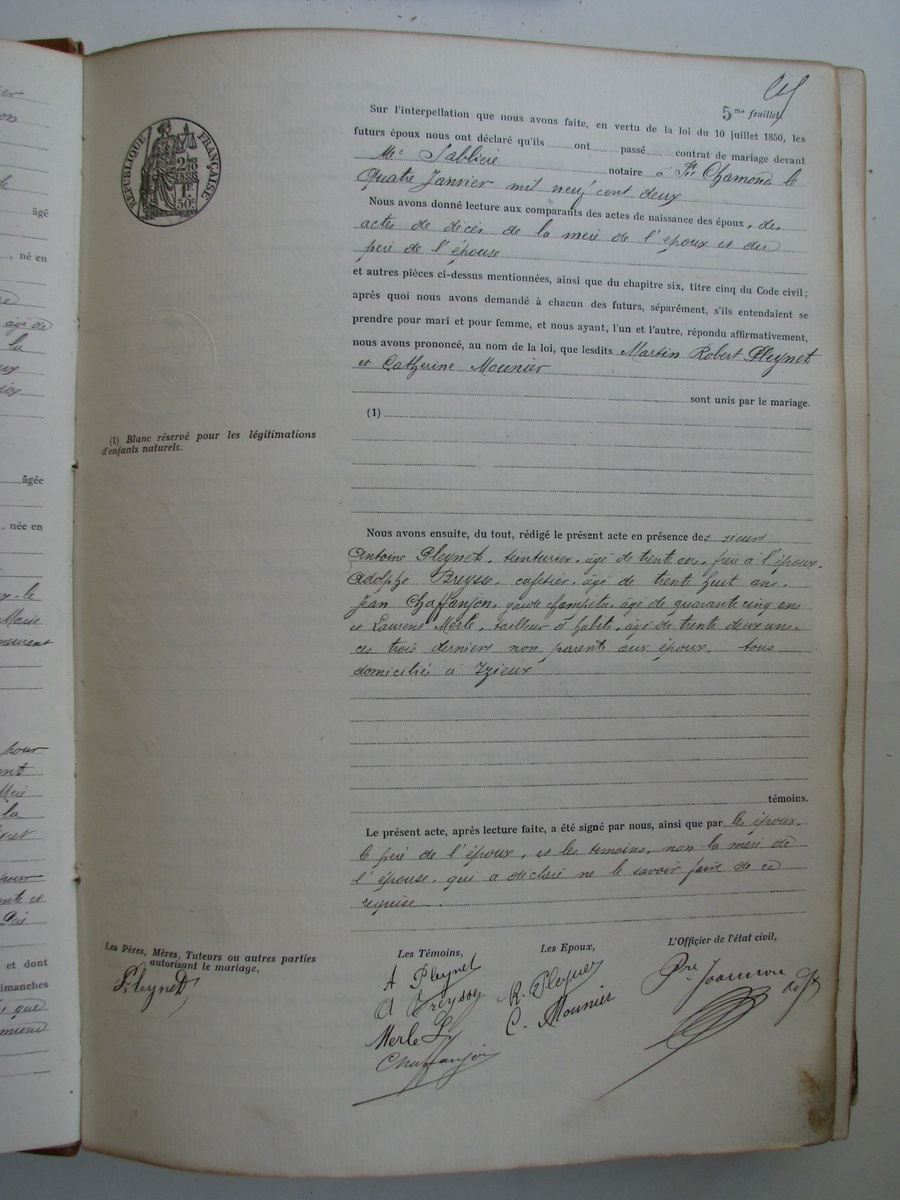 5me feuillet
Sur l'interpellation que nous avons faite, en vertu de la loi du 10 juillet 1850, les
futurs époux nous ont déclaré qu'ils ont passé contrat de mariage devant
Me Sablière notaire à St Chamond le
Quatre Janvier mil neuf cent deux
Nous avons donné lecture aux comparants des actes de naissance des époux, des
actes de décès de la mère de l'époux et du
père de l'épouse
et autres pièces ci-dessus mentionnées, ainsi que du chapitre six, titre cinq du Code civil;
après quoi nous avons demandé à chacun des futurs, séparément, s'ils entendaient se
prendre pour mari et pour femme, et nous ayant, l'un et l'autre, répondu affirmativement,
nous avons prononcé, au nom de la loi, que lesdits Martin Robert Pleynet
et Catherine Mounier
sont unis par le mariage.
(1)
Nous avons ensuite, du tout, rédigé le présent acte en présence des sieurs
Antoine Pleynet, teinturier, âgé de trente ans, frère à l'époux,
Adolphe Breysse, cafetier, âgé de trente huit ans,
Jean Chaffanjon, garde champêtre, âgé de quarante cinq ans
et Laurent Merle, tailleur d'habits, âgé de trente deux ans,
ces trois derniers non parents aux époux, tous
domiciliés à Izieux
témoins.
Le présent acte, après lecture faite, a été signé par nous, ainsi que par les époux,
le père de l'époux, et les témoins, non la mère de
l'épouse, qui a déclaré ne le savoir faire de ce
requise
RÉPUBLIQUE FRANÇAISE
1F.
50c
(1) Blanc réservé pour les légitimations
d'enfants naturels.
Les Pères, Mères, Tuteurs ou autres parties
autorisant le mariage.
Pleynet
Les Témoins,
A Pleynet
A Breysse
Merle L
Chaffanjon
Les Epoux,
R. Pleynet
C. Mounier
L'Officier de l'état civil,
Pre adjt
âgé
, né en
âgé de
la
âgée
, née en
Marie
pour
la
et dont
dimanches
que